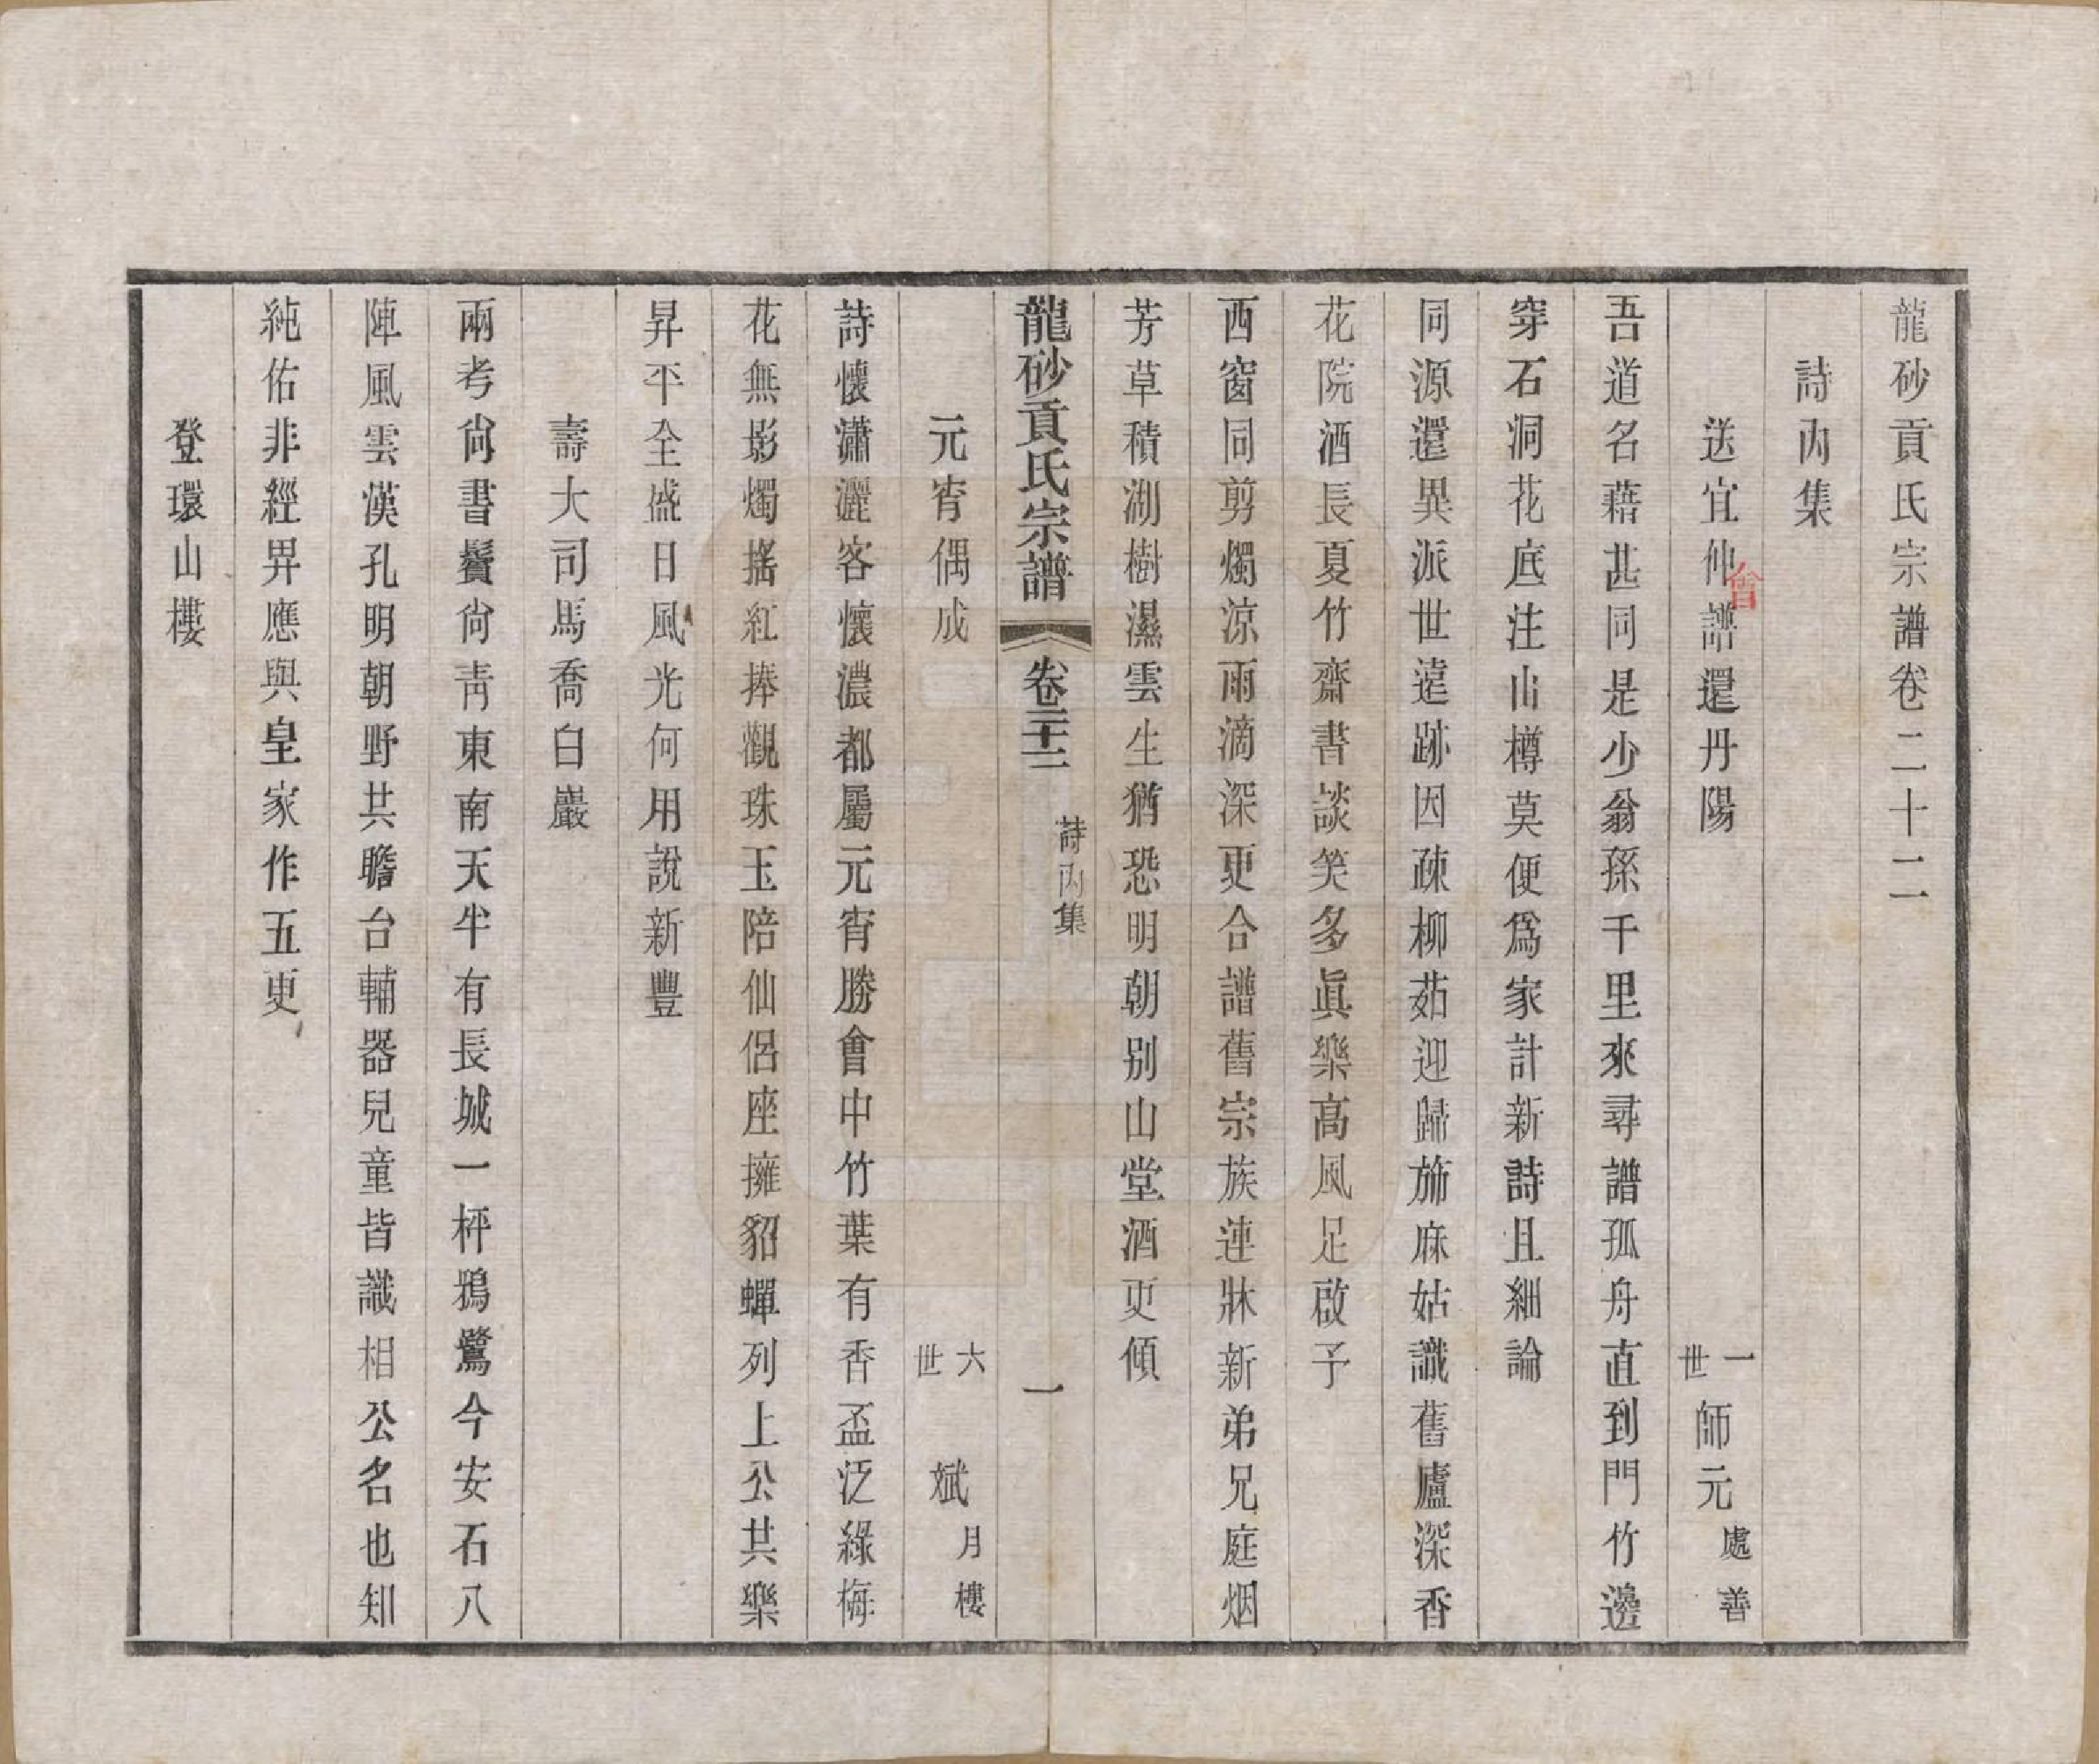 龍砂貢氏宗譜卷二十二
詩內集
送宜仲會譜還丹陽 一世 師元 處善
吾道名藉甚同是少翁孫千里來尋譜孤舟直到門竹邊
穿石洞花底注山樽莫便爲家計新詩且細論
同源還異派世遠跡因疎柳茹迎歸旆麻姑識舊廬深香
花院酒長夏竹齋書談笑多眞樂高風足啟予
西窗同剪燭涼雨滴深更合譜舊宗族連牀新弟兄庭烟
芳草積湖樹濕雲生猶恐明朝別山堂酒更傾
龍砂貢氏宗譜 卷二十二 詩內集 一
元宵偶成 六世 斌 月樓
詩懷瀟灑客懷濃都屬元宵勝會中竹葉有香盃泛綠梅
花無影燭搖紅捧觀珠玉陪仙侶座擁貂蟬列上公共樂
昇平全盛日風光何用說新豐
壽大司馬喬白巖
兩考尙書鬢尙靑東南天半有長城一枰鴉鷺今安石八
陣風雲漢孔明朝野共瞻台輔器兒童皆識相公名也知
純佑非經畀應與皇家作五更
登環山樓